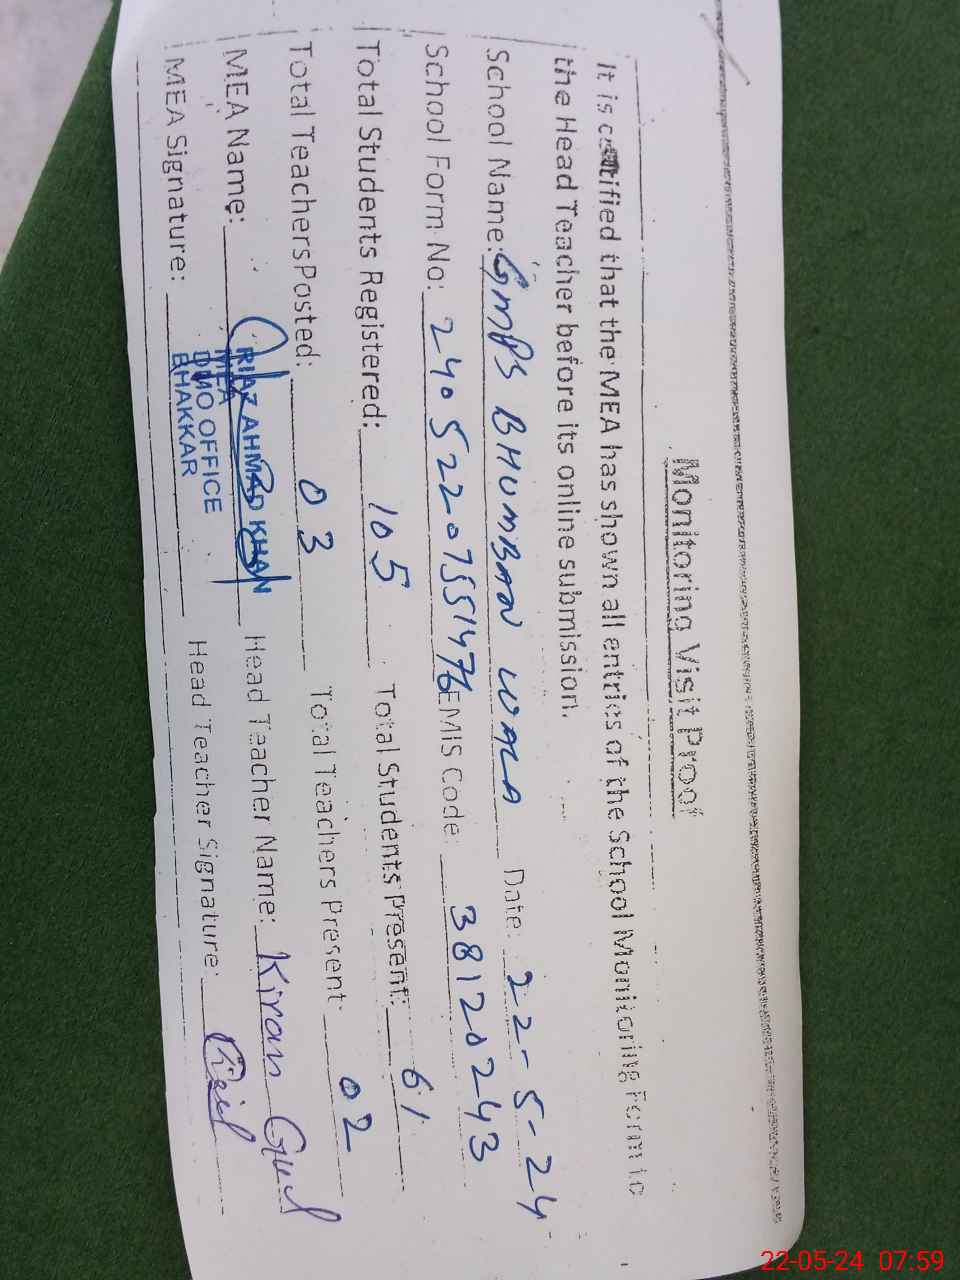 Monitoring Visit Proof
It is certified that the MEA has shown all entries of the School Monitoring Form to
the Head Teacher before its online submission.
School Name: GMPS BHUMBAN WALA Date: 22-5-24
School Form No: 24052207551476 EMIS Code: 38120243
Total Students Registered: 105 Total Students Present: 61
Total Teachers Posted: 03 Total Teachers Present: 02
MEA Name: RIAZ AHMAD KHAN Head Teacher Name: Kiran Gul
MEA
DMO OFFICE
BHAKKAR
MEA Signature: Head Teacher Signature:
22-05-24 07:59